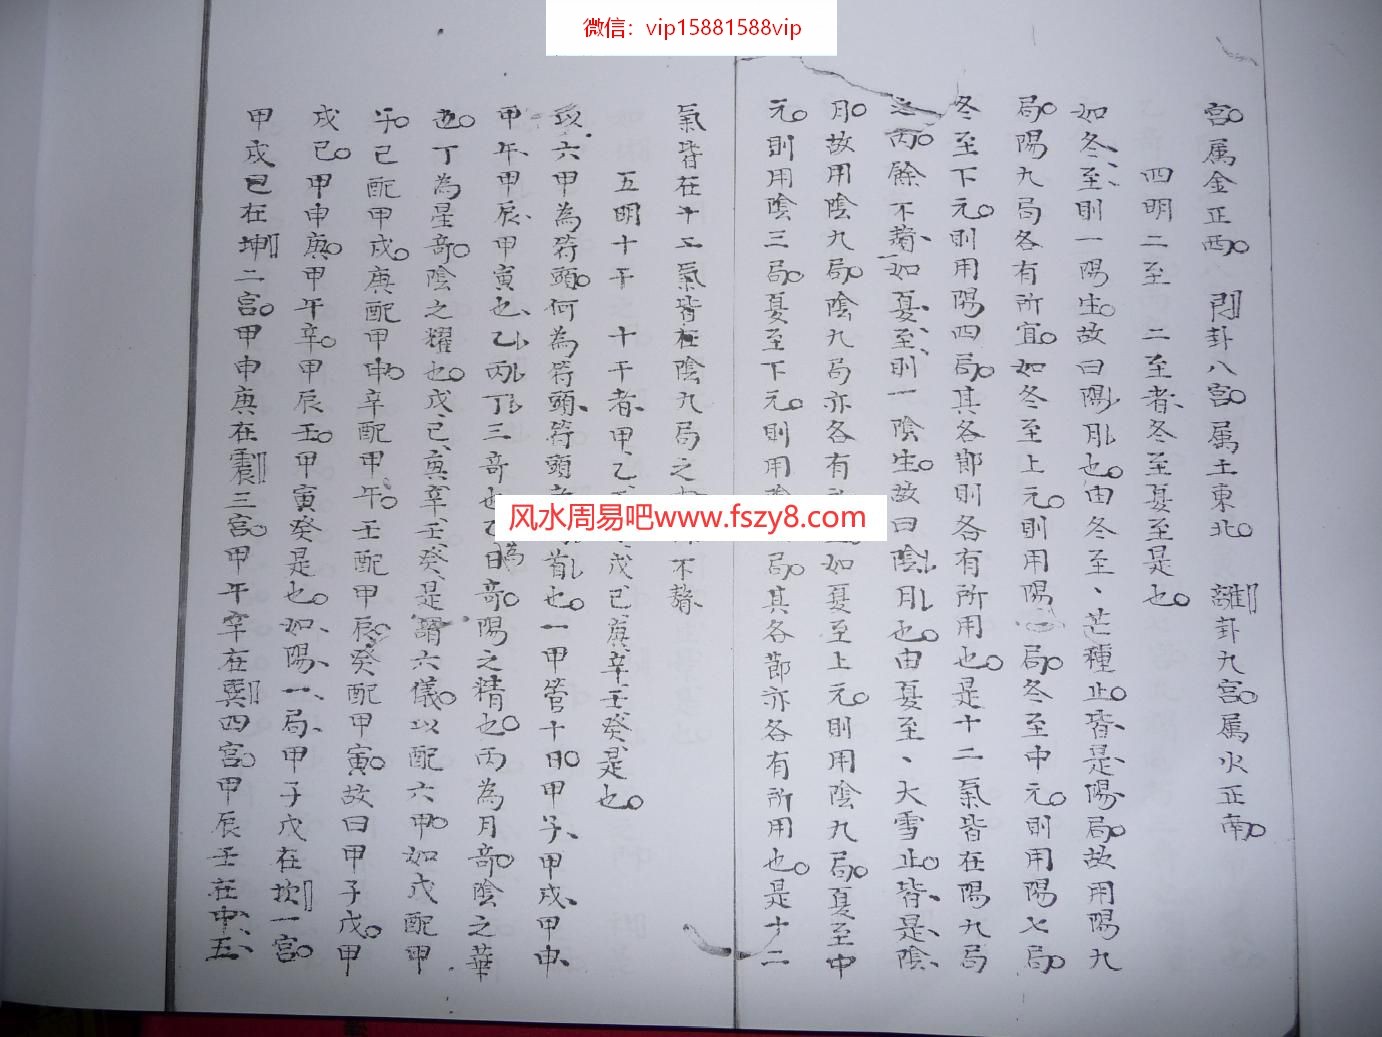 微信：vip15881588vip
宮属金正西 艮卦八宮属土東北 離卦九宮属火正南
四明二至 二至者冬至夏至是也
如冬至則一陽生故曰陽月也由冬至芒種止皆是陽局故用陽九
局陽九局各有所宜如冬至上元則用陽一局冬至中元則用陽七局
冬至下元則用陽四局其各節則各有所用也是十二氣皆在陽九局
之丙餘不贅如夏至則一陰生故曰陰月也由夏至大雪止皆是陰
月故用陰九局陰九局亦各有如夏至上元則用陰九局夏至中
元則用陰三局夏至下元則用局其各節亦各有所用也是十二
氣皆在十二氣皆在陰九局之不贅
五明十干 十干者甲乙戊已庚辛壬癸是也
以六甲為符頭何為符頭符頭首也一甲管十日甲子甲戌甲申
甲午甲辰甲寅也乙丙丁三奇也乙為日奇陽之精也丙為月奇陰之華
也丁為星奇陰之耀也戊已庚辛壬癸是謂六儀以配六甲如戊配甲
子己配甲戌庚配甲申辛配甲午壬配甲辰癸配甲寅故曰甲子戊甲
戌己甲申庚甲午辛甲辰壬甲寅癸是也如陽一局甲子戊在坎一宮
甲戌己在坤二宮甲申庚在震三宮甲午辛在巽四宮甲辰壬在中五
风水周易吧www.fszy8.com